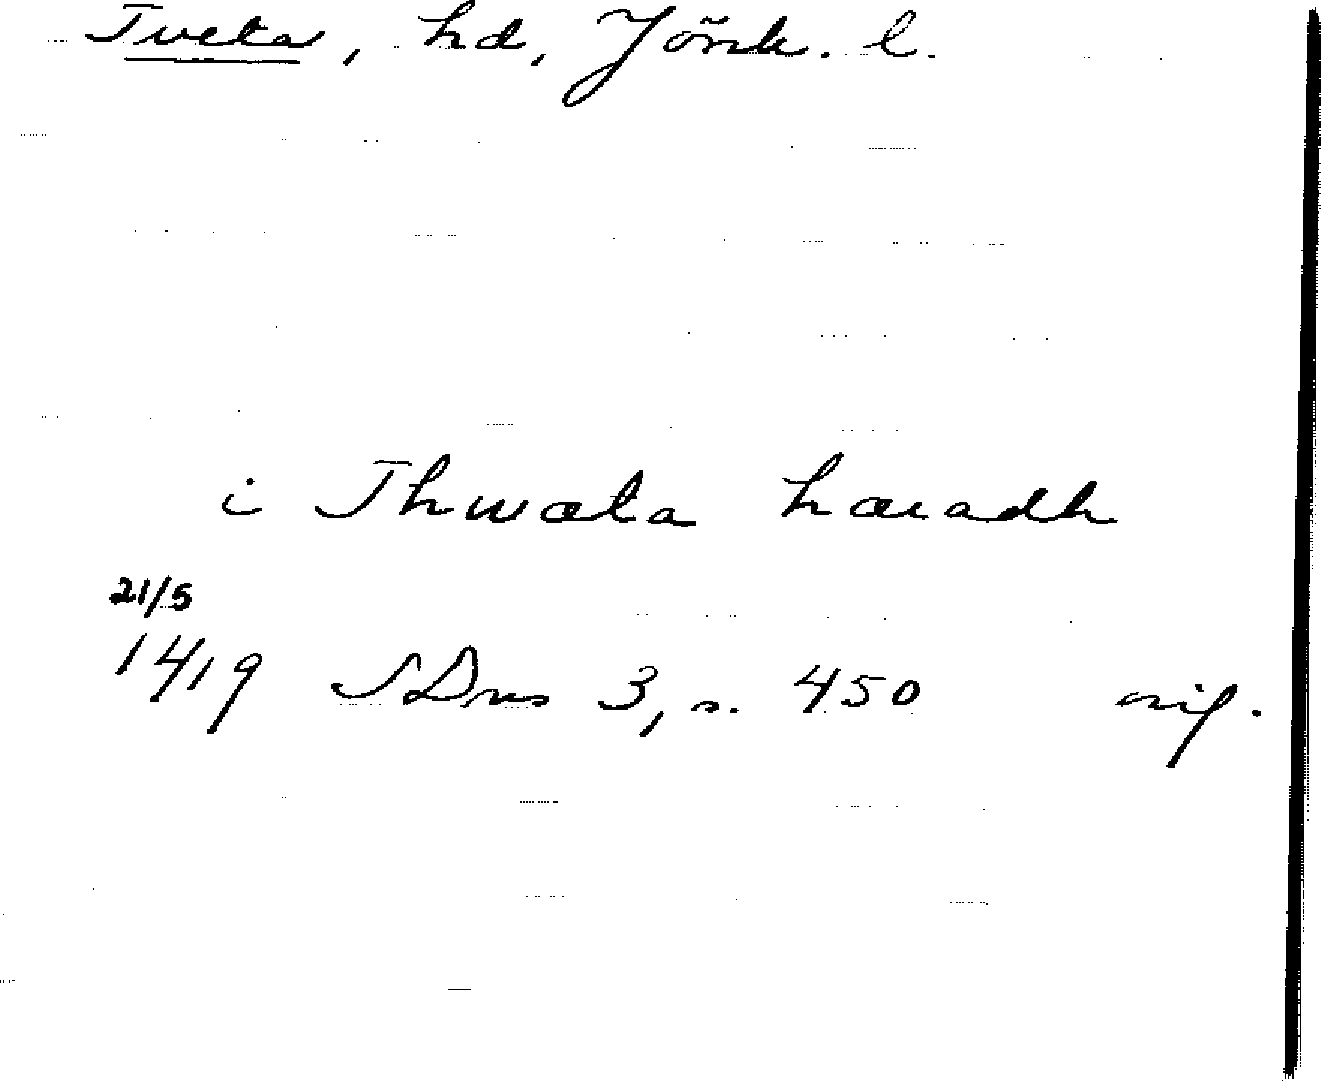 Tveta, hd, Jönk. l.
i Thwæta hæradh
21/5
1419 SDns 3, s. 450 orig.